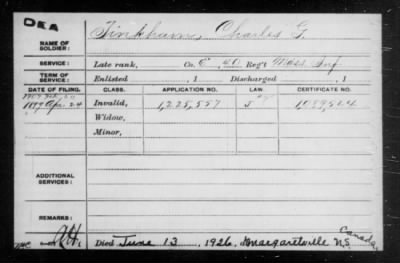 DEA
NAME OF SOLDIER: Tinkham, Charles G.
SERVICE: Late rank, Co. E, 40 Reg't Mass Inf
TERM OF SERVICE: Enlisted , 1 Discharged , 1
DATE OF FILING. CLASS. APPLICATION NO. LAW CERTIFICATE NO.
1899 Apr. 24 Invalid, 1,225,557
Widow,
Minor,
ADDITIONAL SERVICES:
REMARKS:
Died June 13, 1926, Margaretville N.S. Canada